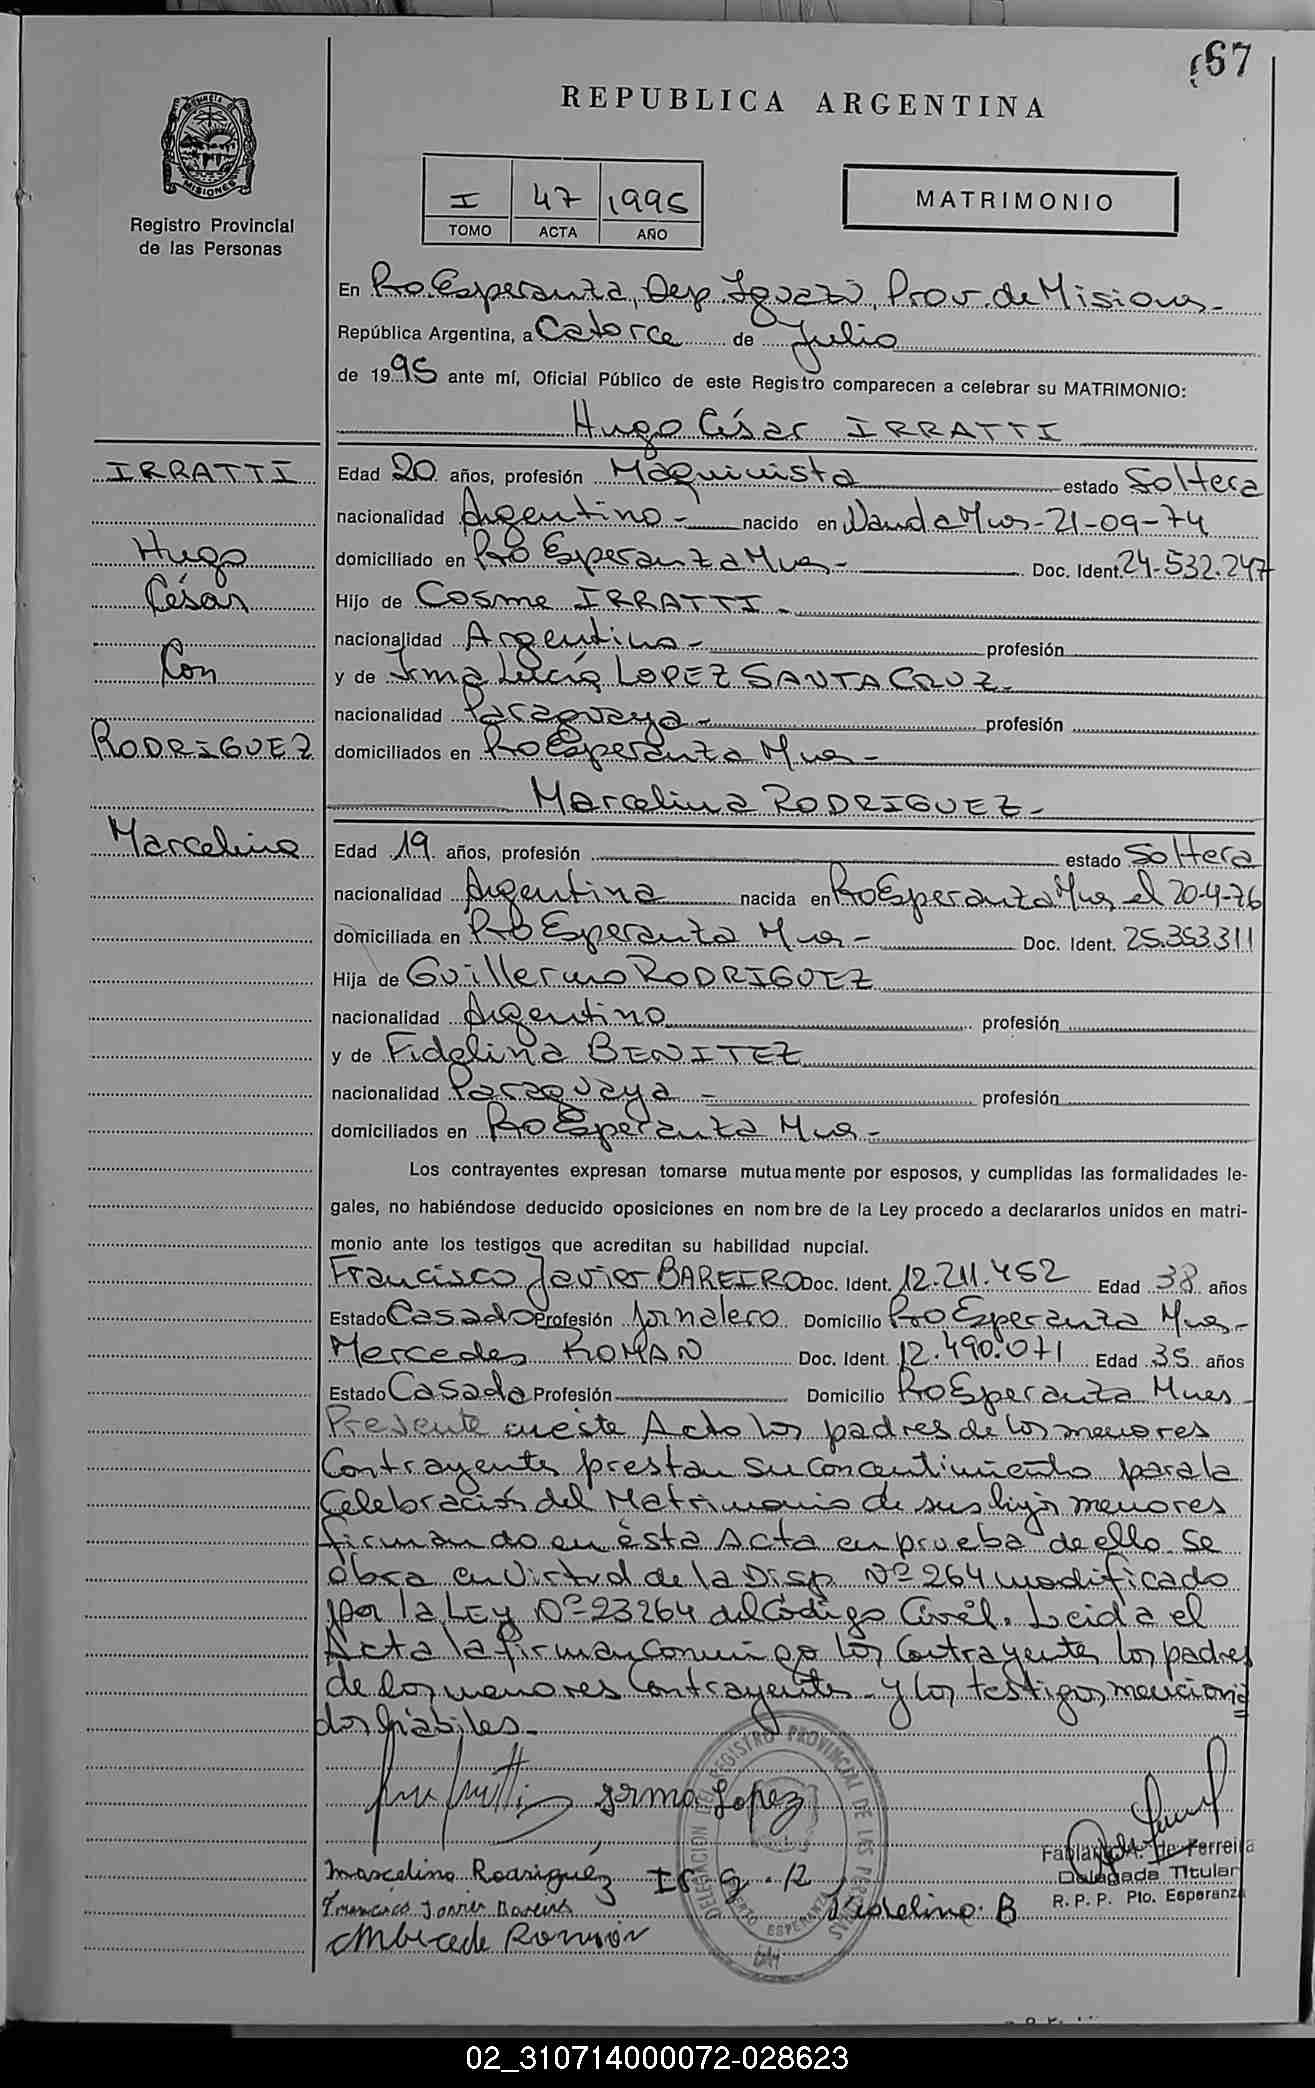 67
REPUBLICA ARGENTINA
PROVINCIA DE
MISIONES
Registro Provincial
de las Personas
I 47 1995
TOMO ACTA AÑO
MATRIMONIO
En Pto. Esperanza, Dep. Iguazú, Prov. de Misiones-
República Argentina, a Catorce de Julio
de 1995 ante mí, Oficial Público de este Registro comparecen a celebrar su MATRIMONIO:
Hugo César IRRATTI
IRRATTI
Hugo
César
Con
RODRIGUEZ
Marcelina
Edad 20 años, profesión Maquinista estado Soltera
nacionalidad Argentino- nacido en Wanda Mnes-21-09-74
domiciliado en Pto Esperanza Mnes- Doc. Ident. 24-532.247
Hijo de Cosme IRRATTI-
nacionalidad Argentino- profesión
y de Irma Lucía LOPEZ SANTACRUZ-
nacionalidad Paraguaya- profesión
domiciliados en Pto Esperanza Mnes-
Marcelina RODRIGUEZ-
Edad 19 años, profesión estado Soltera
nacionalidad Argentina nacida en Pto Esperanza Mnes el 20-4-76
domiciliada en Pto Esperanza Mnes- Doc. Ident. 25.353.311
Hija de Guillermo RODRIGUEZ
nacionalidad Argentino profesión
y de Fidelina BENITEZ
nacionalidad Paraguaya - profesión
domiciliados en Pto Esperanza Mnes-
Los contrayentes expresan tomarse mutuamente por esposos, y cumplidas las formalidades le-
gales, no habiéndose deducido oposiciones en nombre de la Ley procedo a declararlos unidos en matri-
monio ante los testigos que acreditan su habilidad nupcial.
Francisco Javier BAREIRO Doc. Ident. 12.211.452 Edad 38 años
Estado Casado Profesión Jornalero Domicilio Pto Esperanza Mnes-
Mercedes ROMAN Doc. Ident. 12.490.071 Edad 35 años
Estado Casada Profesión Domicilio Pto Esperanza Mnes
Presente en éste Acto los padres de los menores
Contrayentes prestan su concentimiento para la
Celebración del Matrimonio de sus hijos menores
firmando en ésta Acta en prueba de ello. Se
obra en virtud de la Disp. Nº 264 modificado
por la LEY Nº 23264 del Código Civil. Leida el
Acta la firman conmigo los Contrayentes los padres
de los menores Contrayentes y los testigos menciona
dos hábiles.-
Irma Lopez
Marcelina Rodriguez I G. R
Francisco Javier Bareiro
Fidelina B
Roman
DELEGACION DEL REGISTRO PROVINCIAL DE LAS PERSONAS
PUERTO ESPERANZA
Fabiana A. de Ferreira
Delegada Titular
R. P. P. Pto. Esperanza
02_310714000072-028623